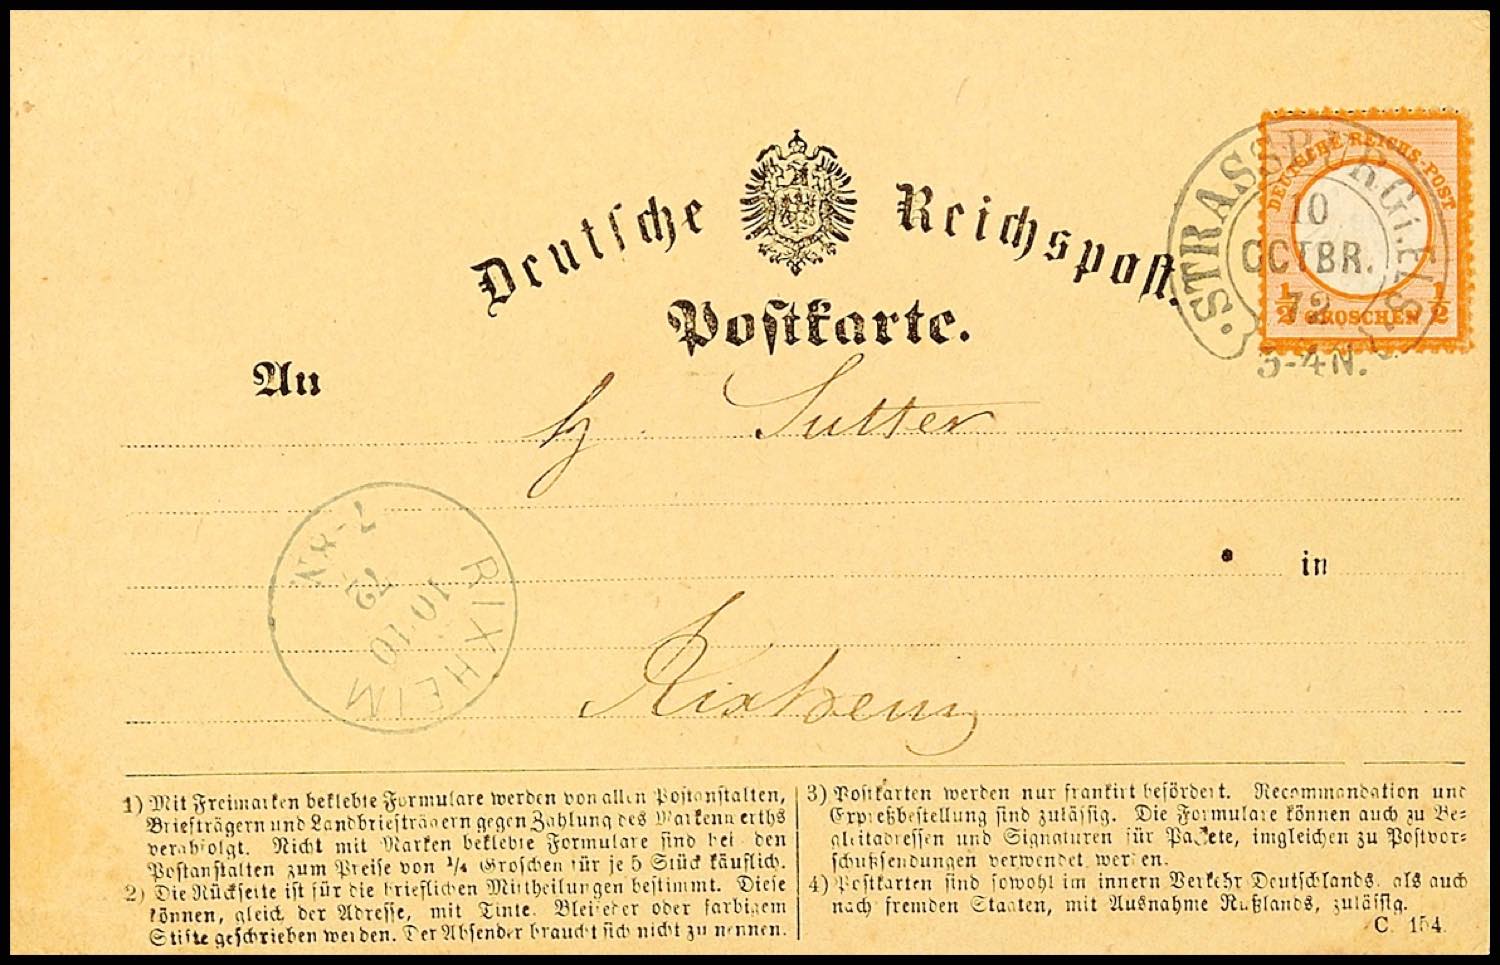 Deutsche Reichspost.
Postkarte.
DEUTSCHE REICHS-POST
½ GROSCHEN ½
STRASSBURG i. ELS.
10
OCTBR.
72
3-4N.
An
Sutter
in
Rixheim
RIXHEIM
10 10
72
7-8N
1) Mit Freimarken beklebte Formulare werden von allen Postanstalten,
Briefträgern und Landbriefträgern gegen Zahlung des Markenwerths
verabfolgt. Nicht mit Marken beklebte Formulare sind bei den
Postanstalten zum Preise von ¼ Groschen für je 5 Stück käuflich.
2) Die Rückseite ist für die brieflichen Mittheilungen bestimmt. Diese
können, gleich der Adresse, mit Tinte, Bleifeder oder farbigem
Stifte geschrieben werden. Der Absender braucht sich nicht zu nennen.
3) Postkarten werden nur frankirt befördert. Recommandation und
Expreßbestellung sind zulässig. Die Formulare können auch zu Be-
gleitadressen und Signaturen für Packete, imgleichen zu Postvor-
schußsendungen verwendet werden.
4) Postkarten sind sowohl im innern Verkehr Deutschlands, als auch
nach fremden Staaten, mit Ausnahme Rußlands, zulässig.
C. 154.